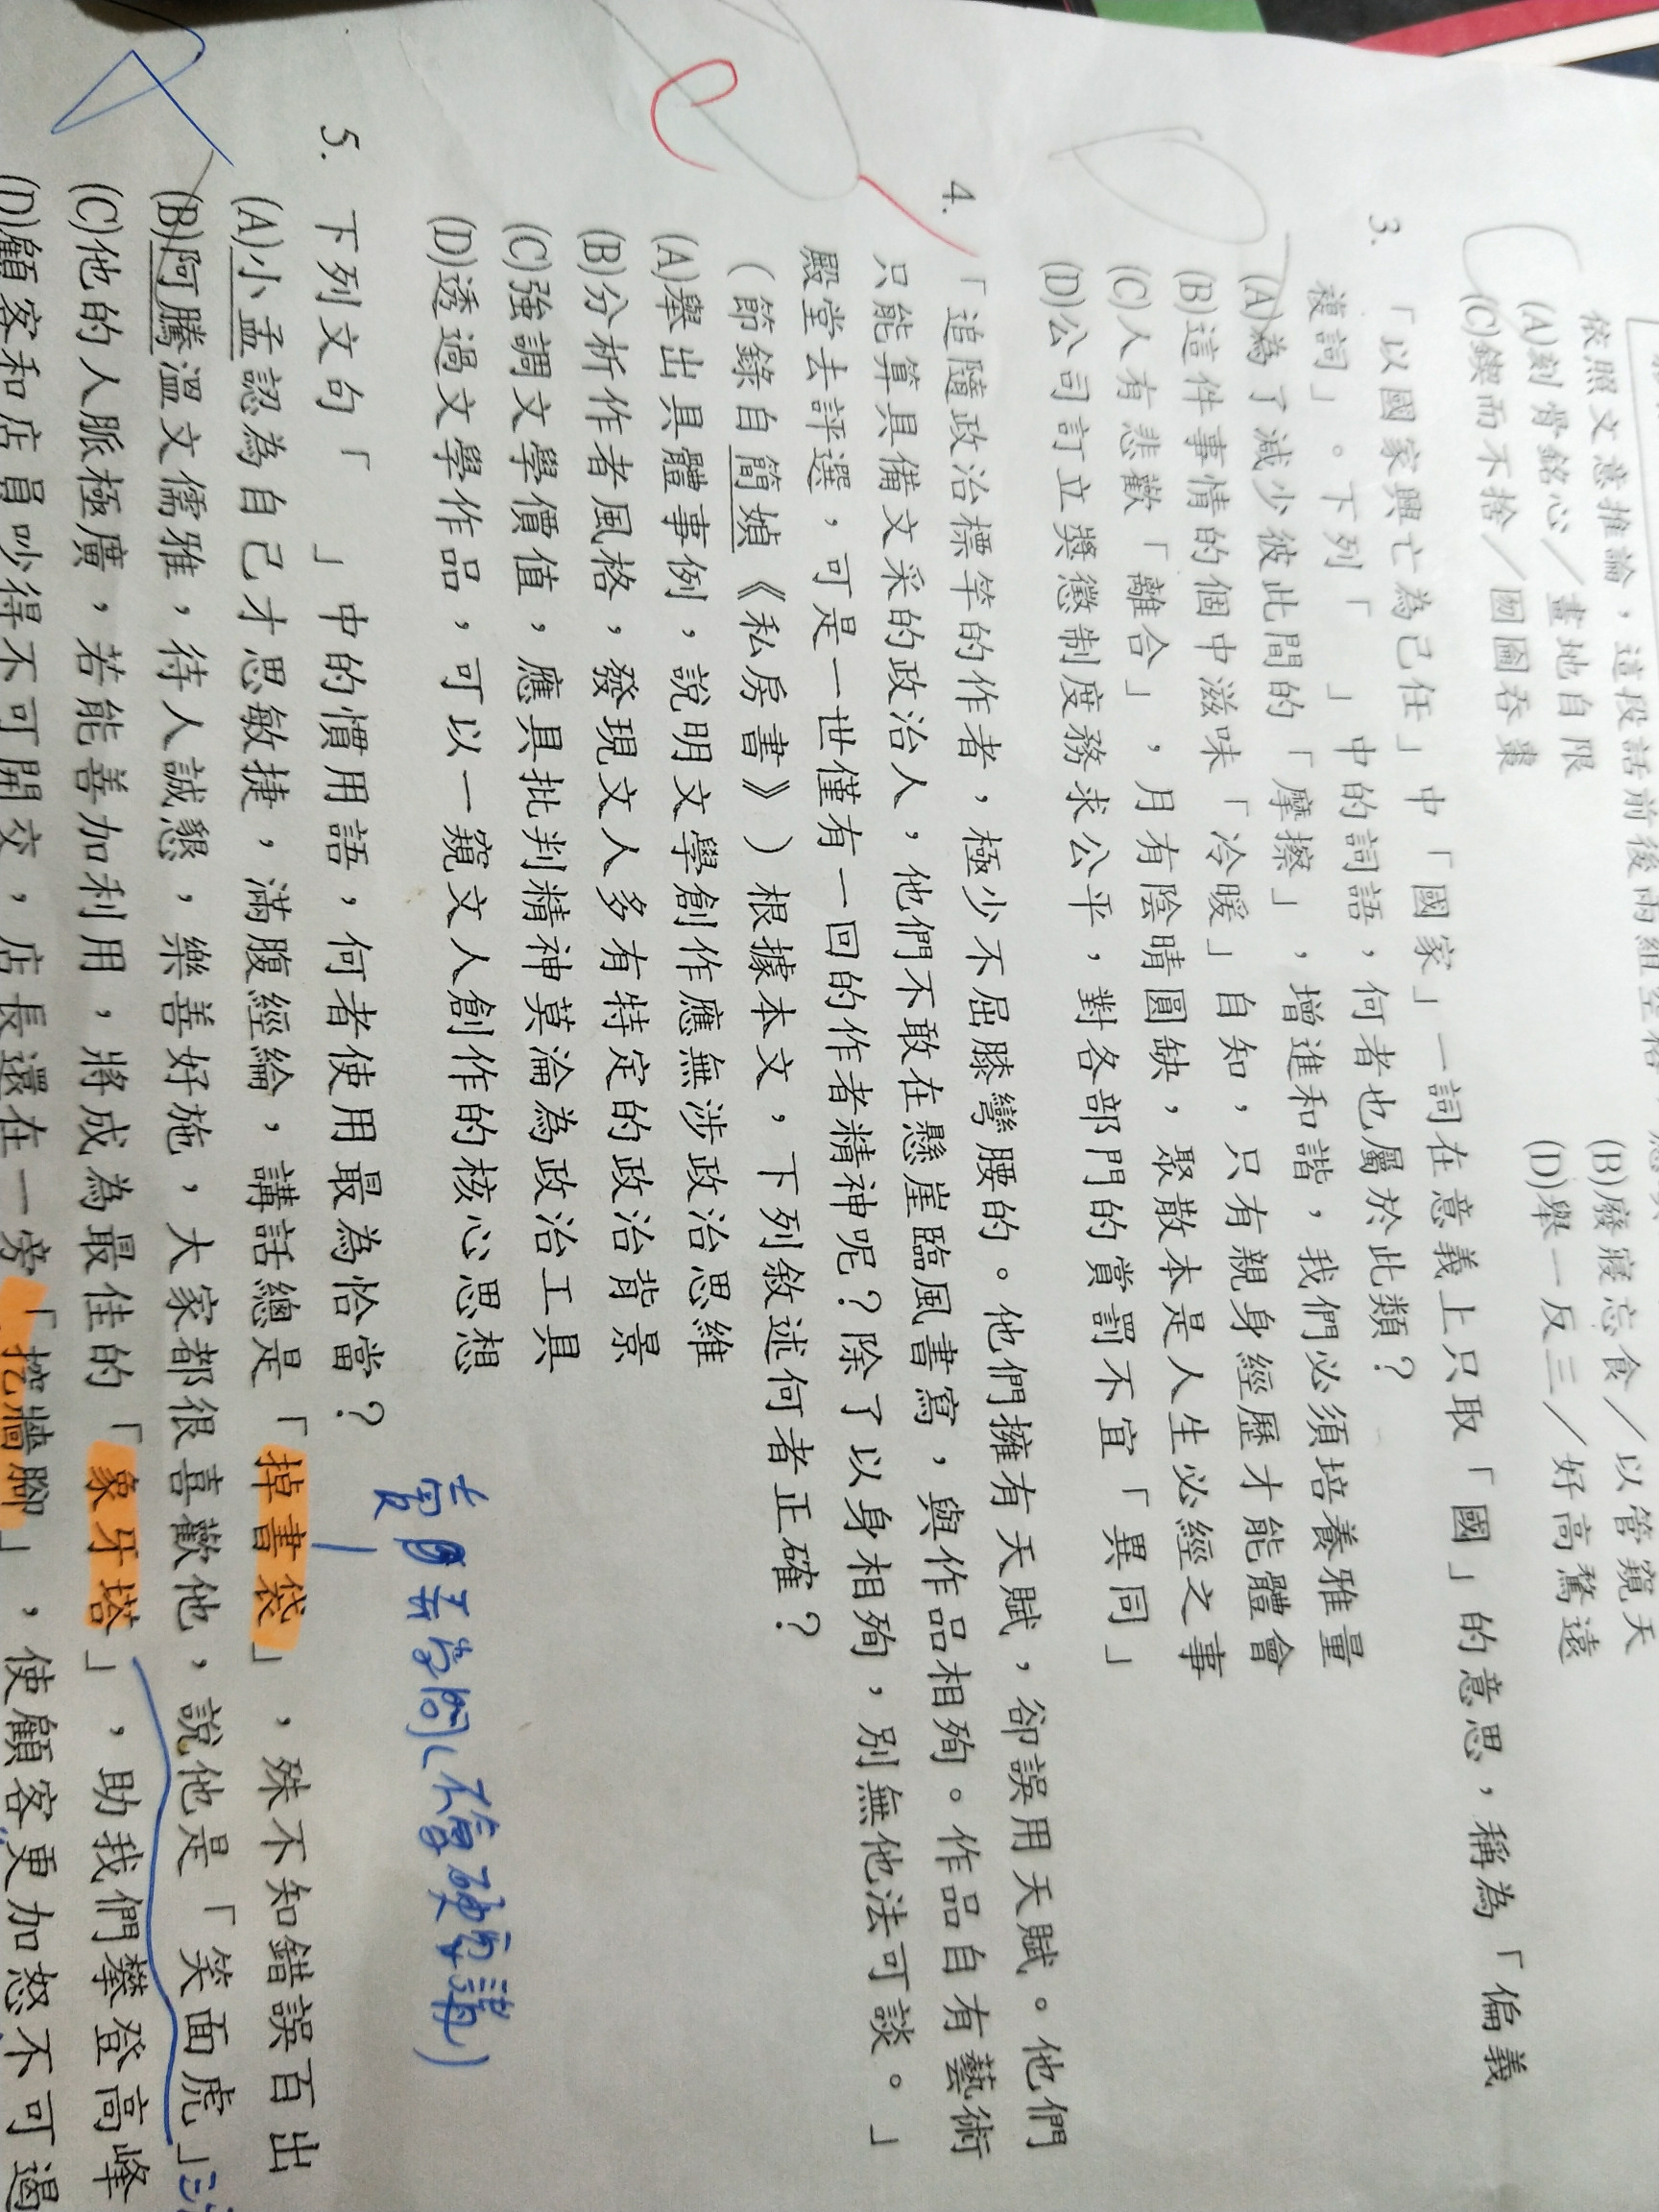 依照文意推論，這段話前後兩組空格
(A)刻骨銘心／畫地自限 (B)廢寢忘食／以管窺天
(C)鍥而不捨／囫圇吞棗 (D)舉一反三／好高騖遠
3. 「以國家興亡為己任」中「國家」一詞在意義上只取「國」的意思，稱為「偏義
複詞」。下列「 」中的詞語，何者也屬於此類？
(A)為了減少彼此間的「摩擦」，增進和諧，我們必須培養雅量
(B)這件事情的個中滋味「冷暖」自知，只有親身經歷才能體會
(C)人有悲歡「離合」，月有陰晴圓缺，聚散本是人生必經之事
(D)公司訂立獎懲制度務求公平，對各部門的賞罰不宜「異同」
4. 「追隨政治標竿的作者，極少不屈膝彎腰的。他們擁有天賦，卻誤用天賦。他們
只能算具備文采的政治人，他們不敢在懸崖臨風書寫，與作品相殉。作品自有藝術
殿堂去評選，可是一世僅有一回的作者精神呢？除了以身相殉，別無他法可談。」
（節錄自簡媜《私房書》）根據本文，下列敘述何者正確？
(A)舉出具體事例，說明文學創作應無涉政治思維
(B)分析作者風格，發現文人多有特定的政治背景
(C)強調文學價值，應具批判精神莫淪為政治工具
(D)透過文學作品，可以一窺文人創作的核心思想
5. 下列文句「 」中的慣用語，何者使用最為恰當？
賣弄學問(不會硬要講)
(A)小孟認為自己才思敏捷，滿腹經綸，講話總是「掉書袋」，殊不知錯誤百出
(B)阿騰溫文儒雅，待人誠懇，樂善好施，大家都很喜歡他，說他是「笑面虎」
(C)他的人脈極廣，若能善加利用，將成為最佳的「象牙塔」，助我們攀登高峰
(D)顧客和店員吵得不可開交，店長還在一旁「挖牆腳」，使顧客更加怒不可遏